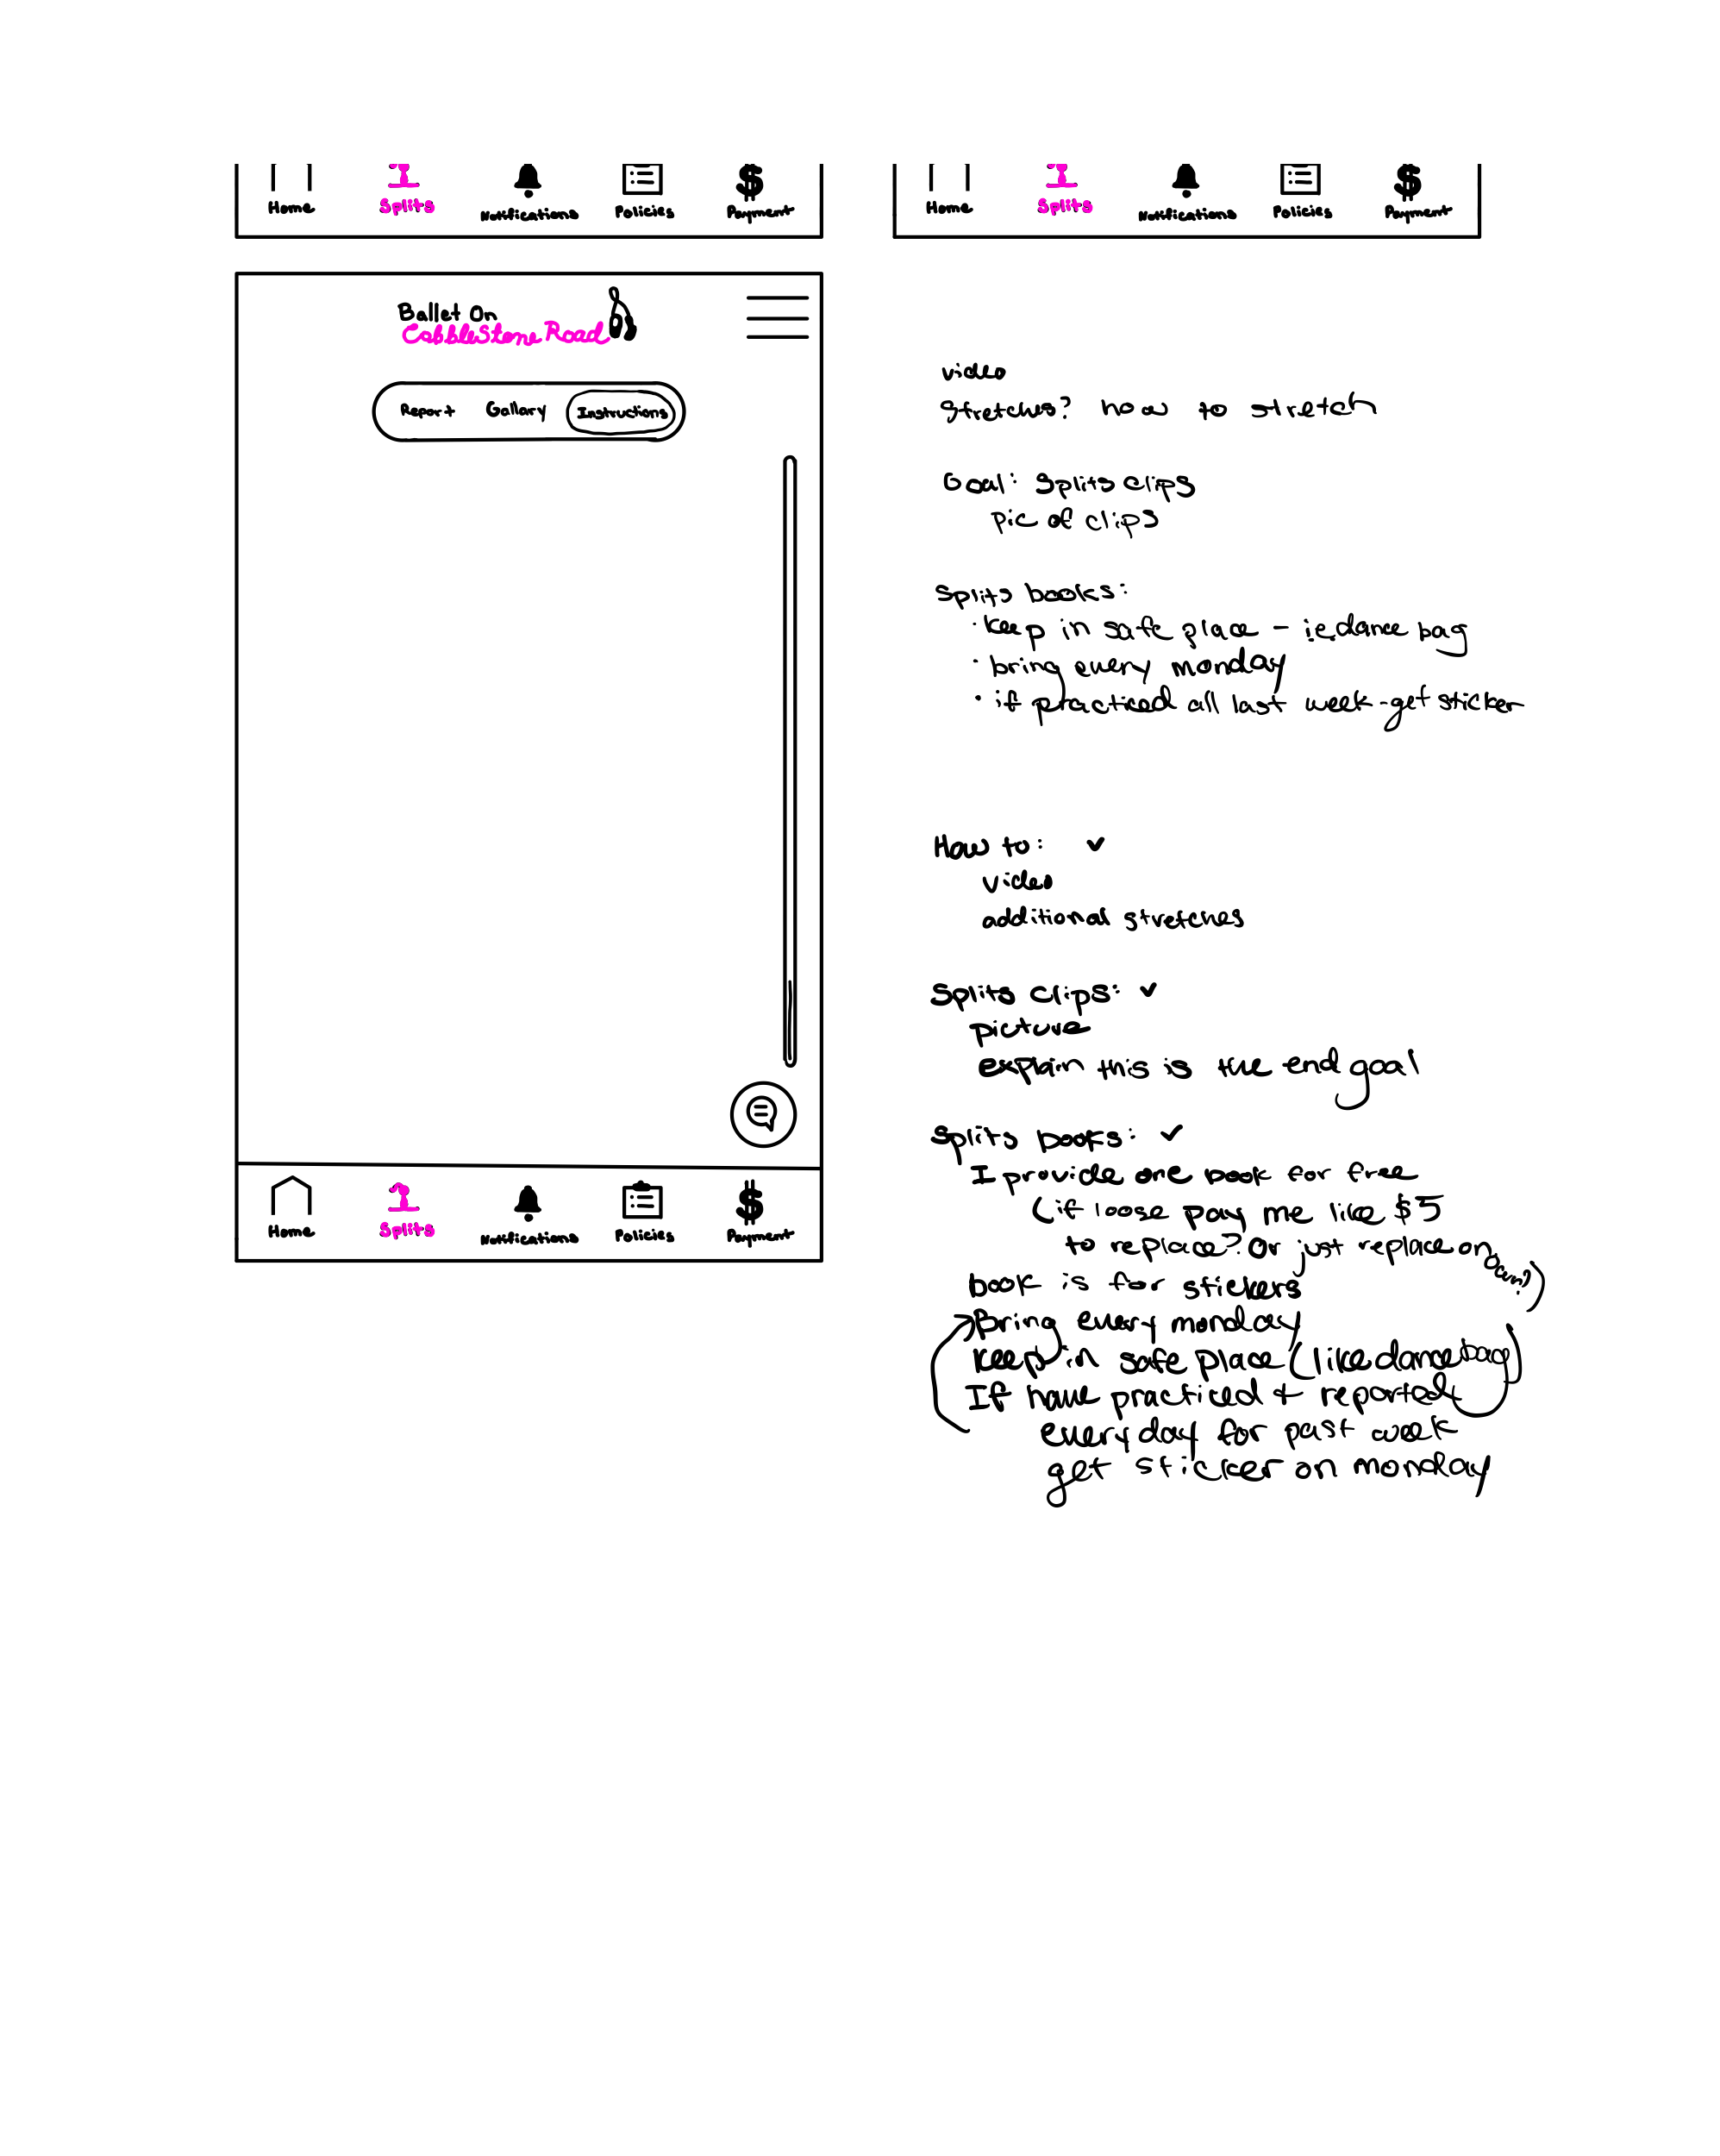 Home Splits Notifications Policies Payment
Home Splits Notifications Policies Payment
Ballet On
CobbleStone Road
Report Gallary Instructions
Home Splits Notifications Policies Payment
video
Stretches? how to stretch
Goal: Splits clips
pic of clips
Splits books:
· keep in safe place - i.e. dance bag
· bring every monday
· if practiced all last week - get sticker
How to: ✓
video
additional stretches
Splits Clips: ✓
picture
explain this is the end goal
Splits books: ✓
I provide one book for free
(if loose pay me like $5
to replace? Or just replace on own?)
book is for stickers
Bring every monday
keep in safe place (like dance bag)
If have practiced + reported
every day for past week
get sticker on monday